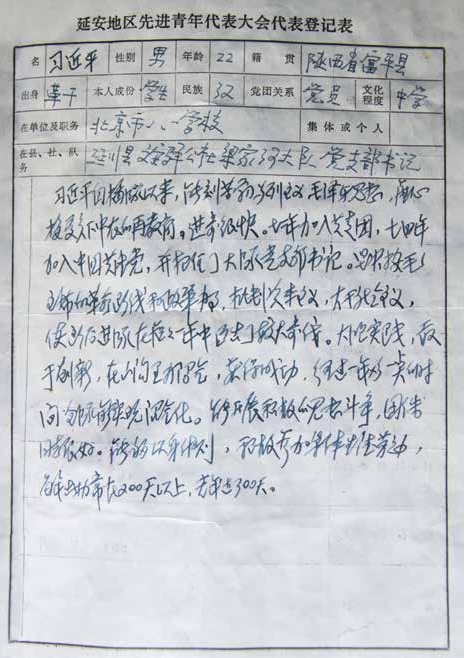 延安地区先进青年代表大会代表登记表
姓名 习近平 性别 男 年龄 22 籍贯 陕西省富平县
出身 革干 本人成份 学生 民族 汉 党团关系 党员 文化程度 中学
原在单位及职务 北京市八一学校 集体或个人
现在县、社、队职务 延川县文安驿公社梁家河大队 党支部书记
习近平同 以来,能刻苦学习马列主义毛泽东思想,虚心
接受贫下中农的再教育。进步很快。七 年加入共青团,七四年
加入中国共产党,并担任了大队党支部书记。 坚决按毛
主席的革命路线 办事,批判资本主义,大干社会主义,
使 后进队在 一年中 了较大变化。大胆实践,敢
于创新,在 办沼气,获得成功,经过一年多 时
间 全队 实现沼气化。能 开展积极的思想斗争,团结
同志很好。能够以身作则,积极参加集体生产劳动,
每年出勤常在200天以上, 300天。